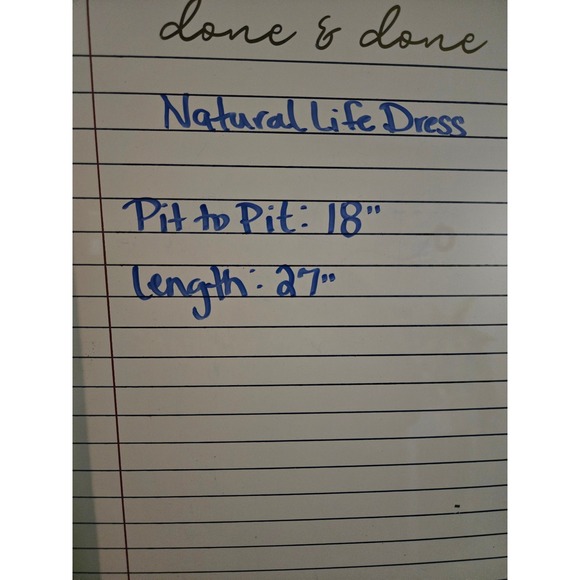 done & done
Natural Life Dress
Pit to Pit: 18"
Length: 27"